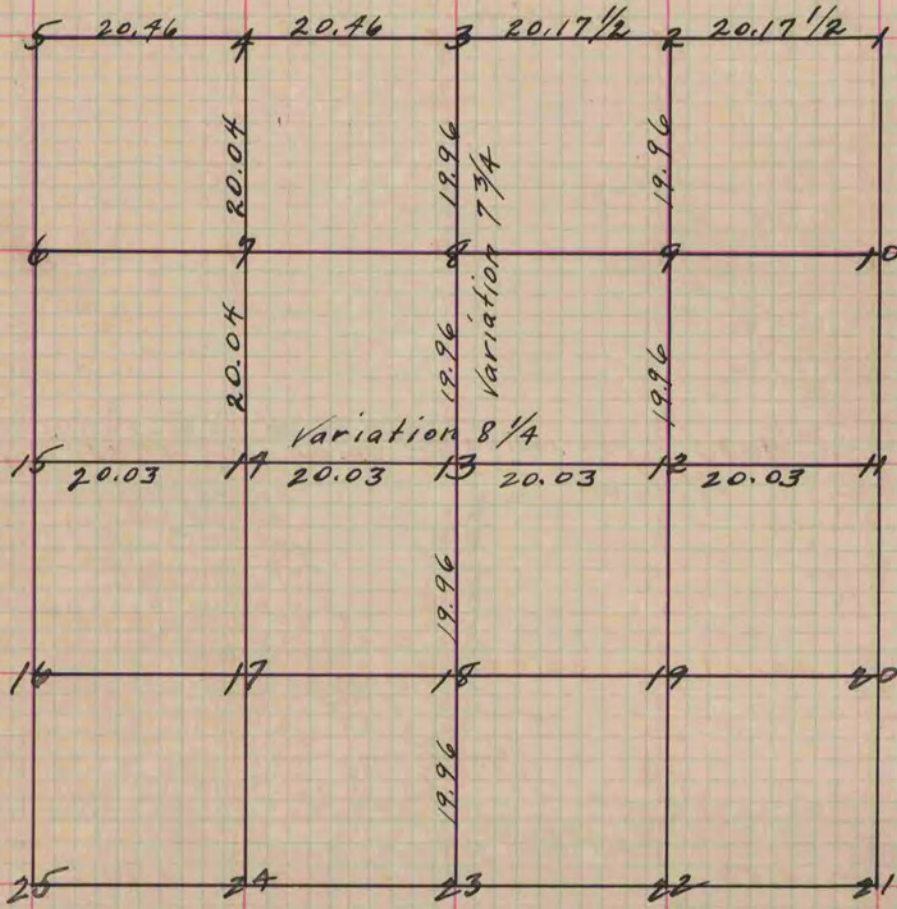 5 20.46 4 20.46 3 20.17 1/2 2 20.17 1/2 1
20.04
19.96
Variation 7 3/4
19.96
6 7 8 9 10
20.04
19.96
19.96
Variation 8 1/4
15 14 13 12 11
20.03 20.03 20.03 20.03
19.96
16 17 18 19 20
19.96
25 24 23 22 21